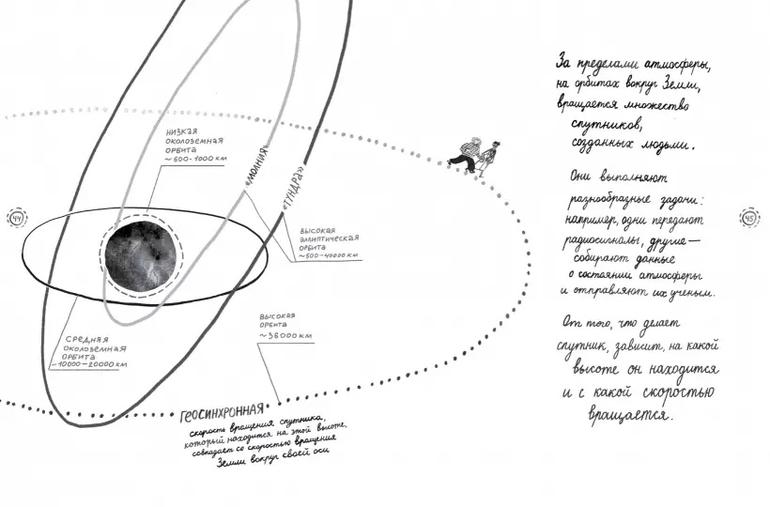 44
НИЗКАЯ
ОКОЛОЗЕМНАЯ
ОРБИТА
~600-1000 КМ
«МОЛНИЯ»
«ТУНДРА»
ВЫСОКАЯ
ЭЛЛИПТИЧЕСКАЯ
ОРБИТА
~500-40000 КМ
СРЕДНЯЯ
ОКОЛОЗЕМНАЯ
ОРБИТА
~10000-20000 КМ
ВЫСОКАЯ
ОРБИТА
~36000 КМ
ГЕОСИНХРОННАЯ
скорость вращения спутника,
который находится на этой высоте,
совпадает со скоростью вращения
Земли вокруг своей оси
За пределами атмосферы,
на орбитах вокруг Земли,
вращается множество
спутников,
созданных людьми.
Они выполняют
разнообразные задачи:
например, одни передают
радиосигналы, другие —
собирают данные
о состоянии атмосферы
и отправляют их учёным.
От того, что делает
спутник, зависит, на какой
высоте он находится
и с какой скоростью
вращается.
45